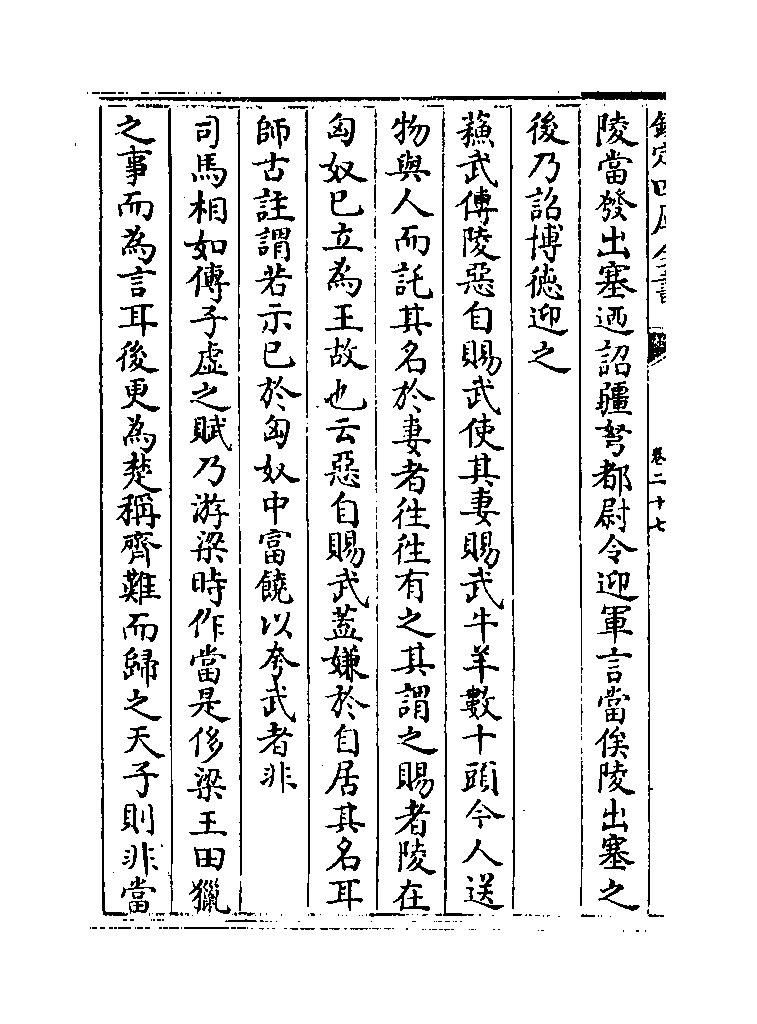 欽定四庫全書
卷二十七
陵當發出塞迺詔疆弩都尉令迎軍言當俟陵出塞之
後乃詔博德迎之
蘓武傳陵惡自賜武使其妻賜武牛羊數十頭今人送
物與人而託其名於妻者往往有之其謂之賜者陵在
匈奴已立為王故也云惡自賜武蓋嫌於自居其名耳
師古註謂若示已於匈奴中富饒以夸武者非
司馬相如傳子虛之賦乃游梁時作當是侈梁王田獵
之事而為言耳後更為楚稱齊難而歸之天子則非當